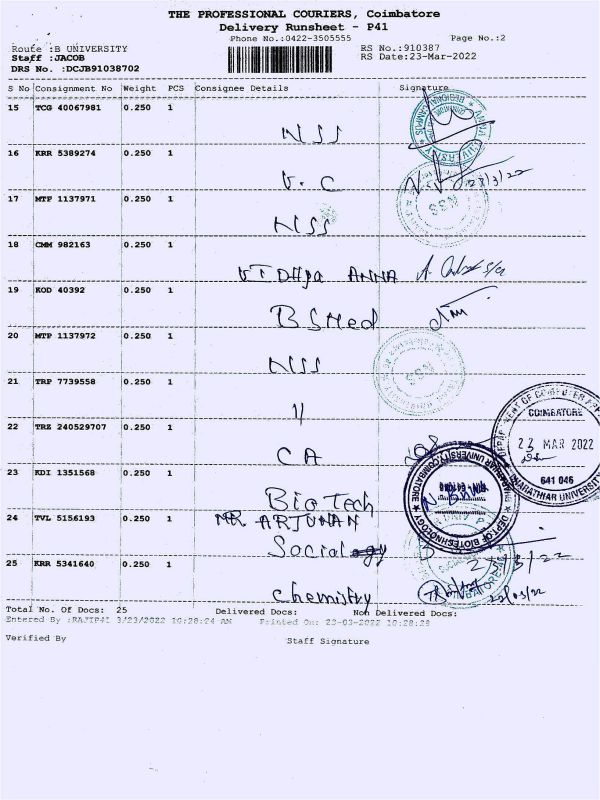 THE PROFESSIONAL COURIERS, Coimbatore
Delivery Runsheet - P41
Phone No.:0422-3505555 Page No.:2
Route :B UNIVERSITY RS No.:910387
Staff :JACOB RS Date:23-Mar-2022
DRS No. :DCJB91038702
S No Consignment No Weight PCS Consignee Details Signature
15 TCG 40067981 0.250 1
NSS
16 KRR 5389274 0.250 1
V.C 23/3/22
17 MTP 1137971 0.250 1
NSS
NSS
18 CMM 982163 0.250 1
ANNA
19 KOD 40392 0.250 1
BSMed
20 MTP 1137972 0.250 1
NSS
21 TRP 7739558 0.250 1
11
22 TRZ 240529707 0.250 1
CA
COIMBATORE
23 MAR 2022
641 046
23 KDI 1351568 0.250 1
Bio Tech
DEPT OF BIOTECHNOLOGY
24 TVL 5156193 0.250 1
MR. ARJUNAN
Sociology 23/3/22
25 KRR 5341640 0.250 1
Chemistry 22/03/22
Total No. Of Docs: 25 Delivered Docs: Non Delivered Docs:
Entered By :RAJIP41 3/23/2022 10:28:24 AM Printed On: 23-03-2022 10:28:29
Verified By Staff Signature